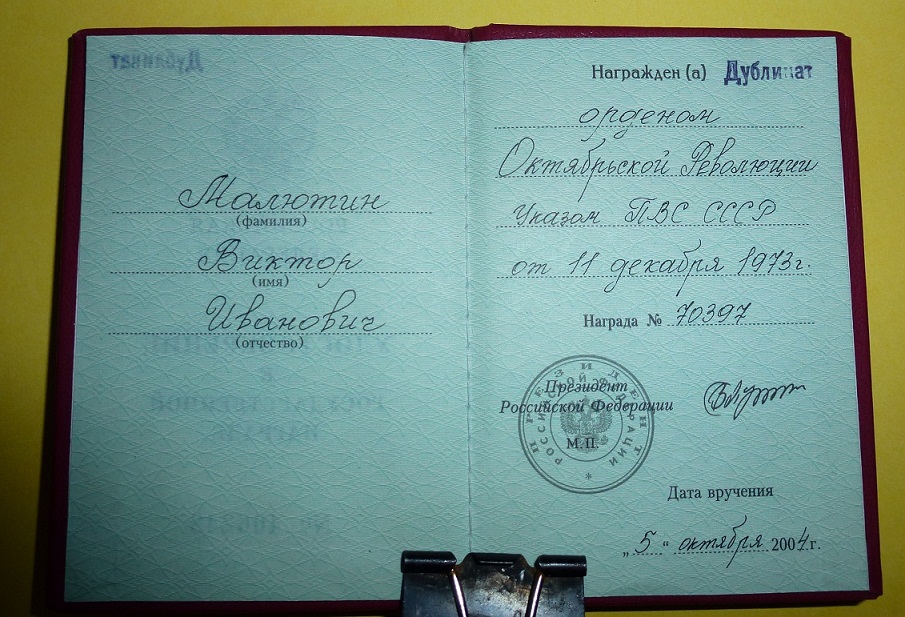 Малютин
(фамилия)
Виктор
(имя)
Иванович
(отчество)
Награжден (а) Дубликат
орденом
Октябрьской Революции
Указом ПВС СССР
от 11 декабря 1973 г.
Награда № 70397
Президент
Российской Федерации
М.П.
ПРЕЗИДЕНТ
РОССИЙСКОЙ ФЕДЕРАЦИИ
Дата вручения
„5“ октября 2004 г.